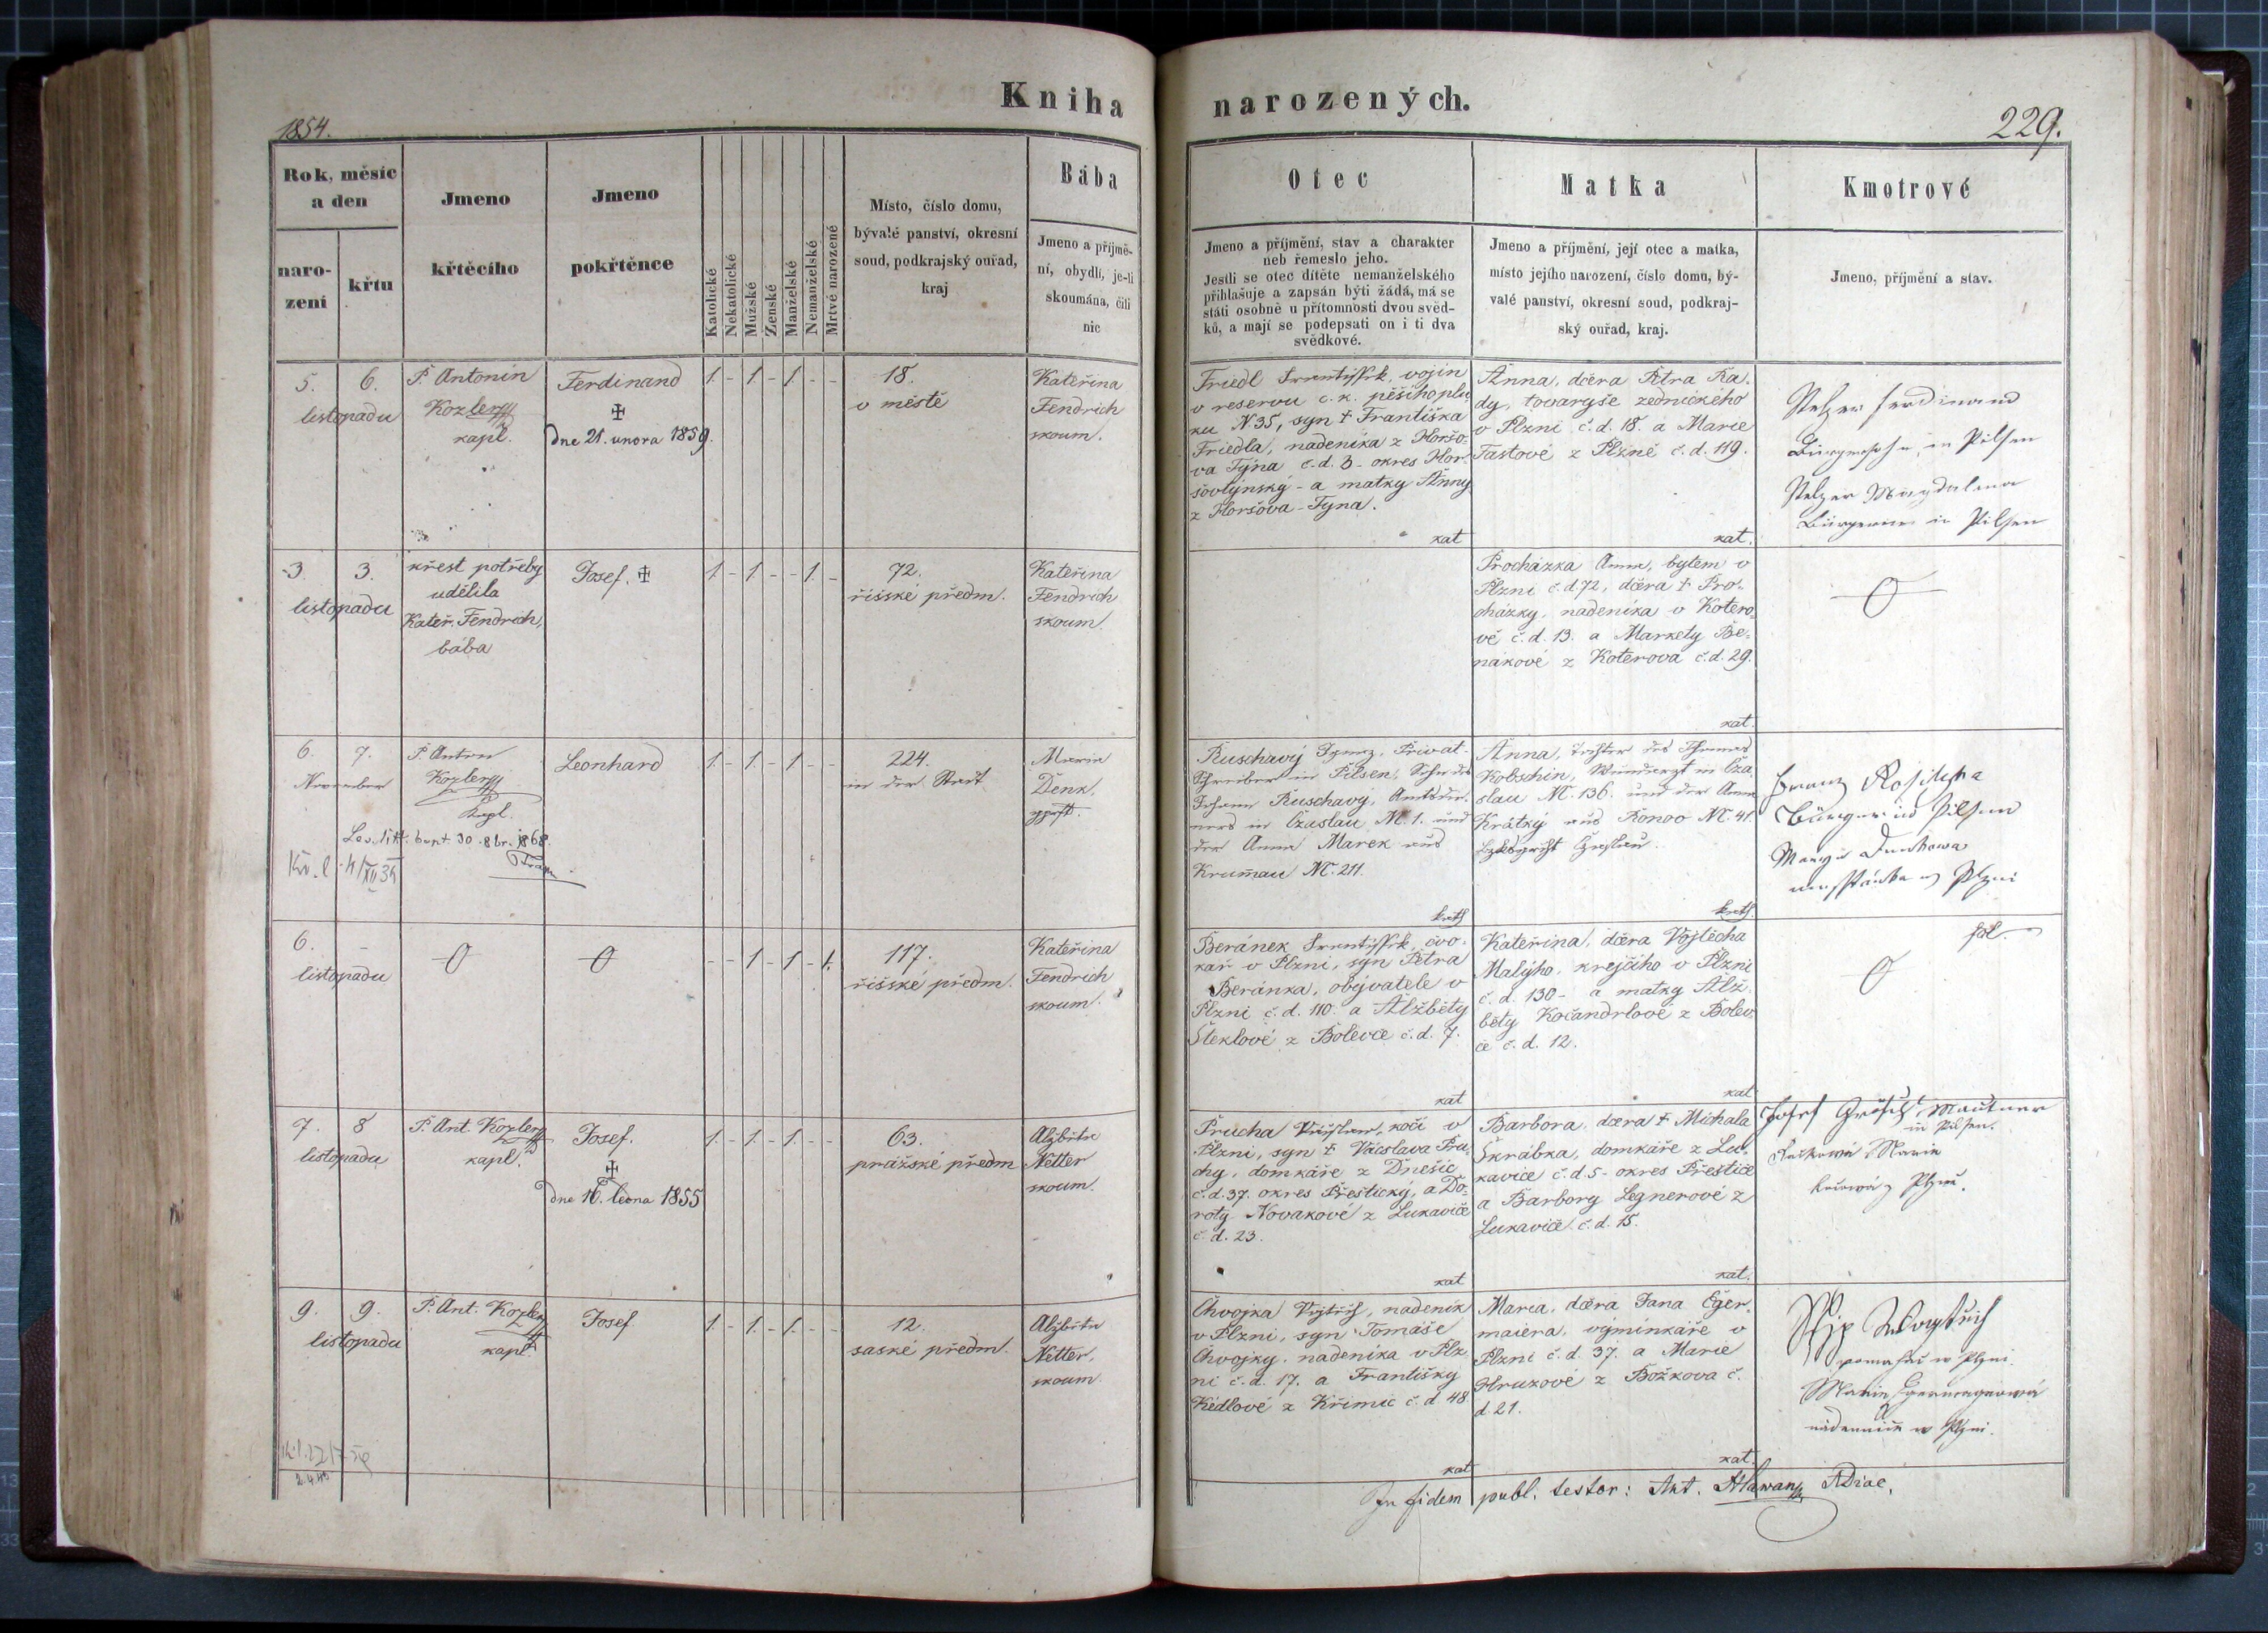 Kniha narozených.
1854.
229.
Rok, měsíc
a den
naro-
zení
křtu
Jmeno
křtěcího
Jmeno
pokřtěnce
Katolické
Nekatolické
Mužské
Ženské
Manželské
Nemanželské
Mrtvě narozené
Místo, číslo domu,
bývalé panství, okresní
soud, podkrajský ouřad,
kraj
Bába
Jmeno a příjmě-
ní, obydlí, je-li
skoumána, čili
nic
Otec
Jmeno a příjmění, stav a charakter
neb řemeslo jeho.
Jestli se otec dítěte nemanželského
přihlašuje a zapsán býti žádá, má se
státi osobně u přítomnosti dvou svěd-
ků, a mají se podepsati on i ti dva
svědkové.
Matka
Jmeno a příjmění, její otec a matka,
místo jejího narození, číslo domu, bý-
valé panství, okresní soud, podkraj-
ský ouřad, kraj.
Kmotrové
Jmeno, příjmění a stav.
5. 6.
listopadu
P. Antonín
Kozler
kapl.
Ferdinand
✠
dne 21. února 1859.
1. - 1 - 1 - -
18.
v městě
Kateřina
Fendrich
skoum.
Friedl Frantissek, vojín
v reservu c. k. pěšího plu
ku N 35, syn † Františka
Friedla, nádeníka z Horšo-
va Týna č. d. 3 - okres Hor-
šovtýnský - a matky Anny
z Horšova-Týna.
kat
Anna, dcera Petra Ka-
dy, tovaryše zednického
v Plzni č. d. 18. a Marie
Fastové z Plzně č. d. 119.
kat.
Stelzer Ferdinand
Bürgerssohn in Pilsen
Stelzer Magdalena
in Pilsen
3. 3.
listopadu
křest potřeby
udělila
Kateř. Fendrich,
bába
Josef. ✠
1. - 1 - - 1. -
72.
říšské předm.
Kateřina
Fendrich
skoum.
Procházka Anna, bytem v
Plzni č. d. 72, dcera † Pro-
cházky, nádeníka v Kotero-
vě č. d. 13. a Markety Be-
nákové z Koterova č. d. 29.
kat.
0
6. 7.
November
P. Anton
Kozler
Kapl.
Leonhard
1. - 1. - 1 - -
224.
in der Stadt
Maria
Denk,
gprft.
30. 8br. 1868.
Ruschavý Ignaz, Privat-
Schreiber in Pilsen, Sohn des
Johann Ruschavý, Amtsdie-
ners in Czaslau N. 1. und
der Anna Marek aus
Krumau N. 211.
kath
Anna, Tochter des Thomas
Kobschin, Wundarzt in Cza
slau N. 136. und der Anna
Krátký aus Ronov N. 41.
Bezksgericht Czaslau.
kath.
Franz
Bürger in Pilsen
6. -
listopadu
0
0
- - 1 - 1 - 1.
117.
říšské předm.
Kateřina
Fendrich
skoum.
Beránek Frantissek, cvo-
kař v Plzni, syn Petra
Beránka, obyvatele v
Plzni č. d. 110. a Alžběty
Šteklové z Bolevce č. d. 7.
kat
Kateřina, dcera Vojtěcha
Malýho, krejčího v Plzni
č. d. 130 - a matky Alž-
běty Kočandrlové z Bolev
ce č. d. 12.
kat
0
7. 8
listopadu
P. Ant. Kozler
kapl.
Josef.
✠
dne 16. ledna 1855
1. - 1. - 1. - -
63.
pražské předm
Alžběta
Netter
skoum.
Prucha Václav, kočí v
Plzni, syn † Vácslava Pru-
chy, domkáře z Dnešic
č. d. 37. okres Přeštický, a Do-
roty Novákové z Lukavice
č. d. 23.
kat
Barbora, dcera † Michala
Škrábka, domkáře z Lu-
kavice č. d. 5 - okres Přeštice
a Barbory Legnerové z
Lukavice č. d. 15.
kat.
Josef Grösch Mautner
in Pilsen.
Marie
9. 9.
listopadu
P. Ant. Kozler
kapl.
Josef
1. - 1. - 1. - -
12.
saské předm.
Alžběta
Netter,
skoum.
Chvojka Vojtěch, nádeník
v Plzni, syn Tomáše
Chvojky, nádeníka v Plz
ni č. d. 17. a Františky
Kédlové z Křimic č. d 48
kat
Maria, dcera Jana Eger-
maiera, výminkáře v
Plzni č. d. 37. a Marie
Hruzové z Božkova č.
d. 21.
kat.
w Plzni.
Marie Egermayerowá
w Plzni.
2.4.45
In fidem publ. testor: Ant. Hlawan